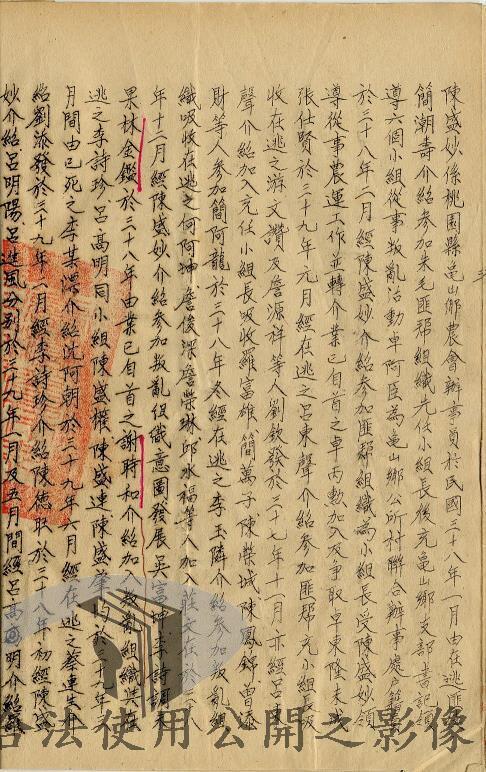 三
陳盛妙係桃園縣龜山鄉農會辦事員於民國三十八年一月由在逃匪
簡潮壽介紹參加朱毛匪幫組織先任小組長後充龜山鄉支部書記領
導六個小組從事叛亂活動卓阿臣為龜山鄉公所村聯合辦事處戶籍員
於三十八年二月經陳盛妙介紹參加匪幫組織為小組長受陳盛妙領
導從事農運工作並轉介業已自首之卓丙勳加入及爭取卓東隆未成
張仕賢於三十九年元月經在逃之呂東聲介紹參加匪幫充小組長吸
收在逃之游文讚及詹源祥等人劉欽發於三十七年十一月亦經呂東
聲介紹加入充任小組長吸收羅富雄簡萬子陳榮城陳鳳錦曾添
財等人參加簡阿龍於三十八年冬經在逃之李玉隣介紹參加叛亂組
織吸收在逃之何阿坤詹俊深詹柴琳邱水福等人加入莊文在於三
年十二月經陳盛妙介紹參加叛亂組織意圖發展吳富李詩調未
果林金鑑於三十八年由業已自首之謝時和介紹加入叛亂組織與在
逃之李詩珍呂高明同小組陳盛權陳盛連陳盛肇均於三十九年
月間由已死之李某澤介紹沈阿朝於二十九年六月經在逃之蔡連
紹劉添發於三十九年一月經李詩珍介紹陳德旺於三十八年初經陳盛
妙介紹呂明陽呂進風分別於三十九年一月及五月間經呂高明介紹羅
法使用公開之影像